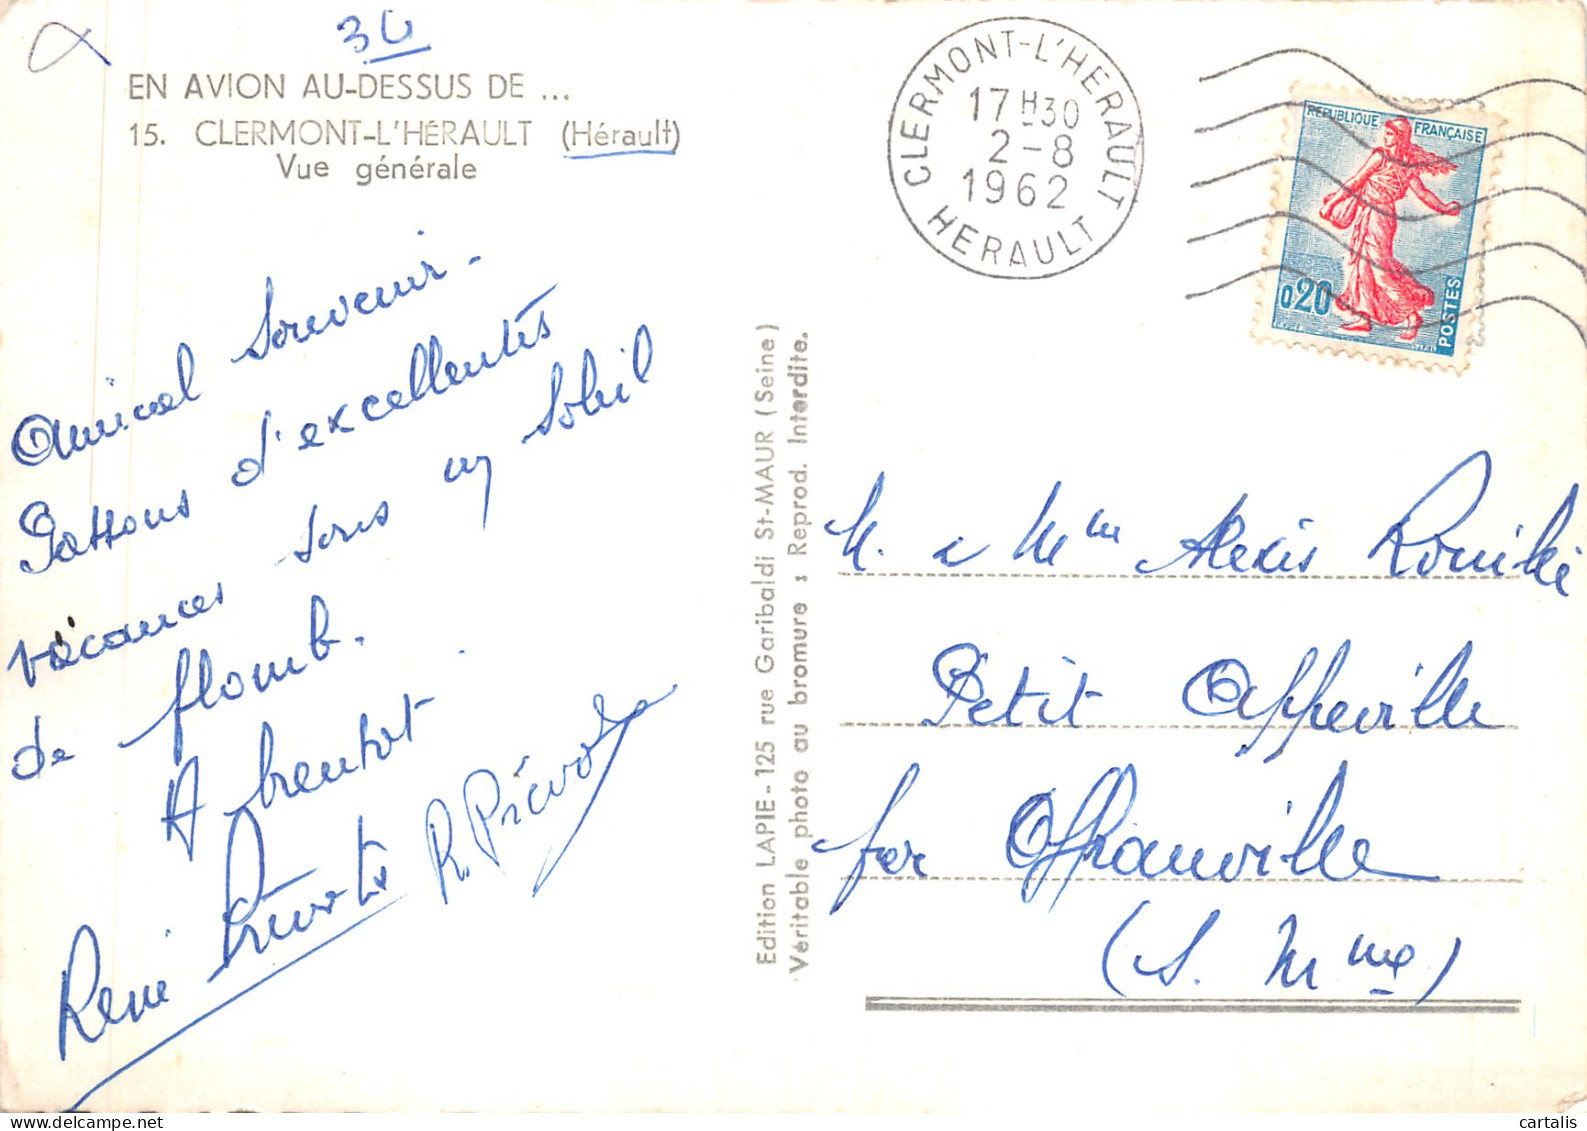 34
EN AVION AU-DESSUS DE ...
15. CLERMONT-L'HÉRAULT (Hérault)
Vue générale
Amical Souvenir -
Passons d'excellentes
vacances sous un Soleil
de plomb.
A bientôt.
René Prévost
R. Prévost
Edition LAPIE - 125 rue Garibaldi St-MAUR (Seine)
Véritable photo au bromure : Reprod. Interdite.
CLERMONT-L'HERAULT
17 H 30
2-8
1962
HERAULT
REPUBLIQUE FRANÇAISE
0,20
POSTES
M. & Mme Alexis
Petit Appeville
par Offranville
(S. Mme)
cartalis